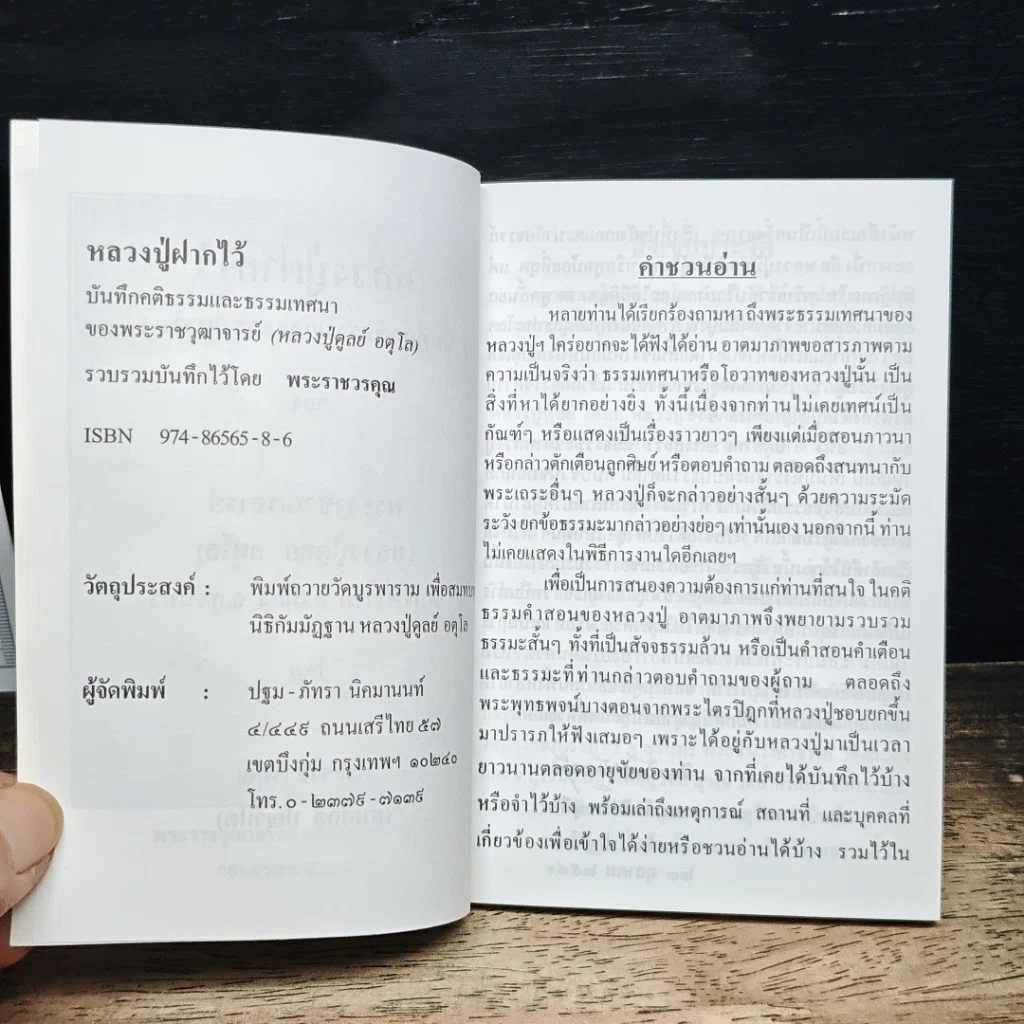 หลวงปู่ฝากไว้
บันทึกคติธรรมและธรรมเทศนา
ของพระราชวุฒาจารย์ (หลวงปู่ดูลย์ อตุโล)
รวบรวมบันทึกไว้โดย พระราชวรคุณ
ISBN 974-86565-8-6
วัตถุประสงค์ : พิมพ์ถวายวัดบูรพาราม เพื่อสมทบ
นิธิกัมมัฏฐาน หลวงปู่ดูลย์ อตุโล
ผู้จัดพิมพ์ : ปฐม - ภัทรา นิคมานนท์
๔/๔๔๙ ถนนเสรีไทย ๕๗
เขตบึงกุ่ม กรุงเทพฯ ๑๐๒๔๐
โทร. ๐ - ๒๓๗๙ - ๗๑๓๙
คำชวนอ่าน
หลายท่านได้เรียกร้องถามหา ถึงพระธรรมเทศนาของ
หลวงปู่ฯ ใคร่อยากจะได้ฟังได้อ่าน อาตมาภาพขอสารภาพตาม
ความเป็นจริงว่า ธรรมเทศนาหรือโอวาทของหลวงปู่นั้น เป็น
สิ่งที่หาได้ยากอย่างยิ่ง ทั้งนี้เนื่องจากท่านไม่เคยเทศน์เป็น
กัณฑ์ๆ หรือแสดงเป็นเรื่องราวยาวๆ เพียงแต่เมื่อสอนภาวนา
หรือกล่าวตักเตือนลูกศิษย์ หรือตอบคำถาม ตลอดถึงสนทนากับ
พระเถระอื่นๆ หลวงปู่ก็จะกล่าวอย่างสั้นๆ ด้วยความระมัด
ระวัง ยกข้อธรรมะมากล่าวอย่างย่อๆ เท่านั้นเอง นอกจากนี้ ท่าน
ไม่เคยแสดงในพิธีการงานใดอีกเลยฯ
เพื่อเป็นการสนองความต้องการแก่ท่านที่สนใจ ในคติ
ธรรมคำสอนของหลวงปู่ อาตมาภาพจึงพยายามรวบรวม
ธรรมะสั้นๆ ทั้งที่เป็นสัจจธรรมล้วน หรือเป็นคำสอนคำเตือน
และธรรมะที่ท่านกล่าวตอบคำถามของผู้ถาม ตลอดถึง
พระพุทธพจน์บางตอนจากพระไตรปิฎกที่หลวงปู่ชอบยกขึ้น
มาปรารภให้ฟังเสมอๆ เพราะได้อยู่กับหลวงปู่มาเป็นเวลา
ยาวนานตลอดอายุขัยของท่าน จากที่เคยได้บันทึกไว้บ้าง
หรือจำไว้บ้าง พร้อมเล่าถึงเหตุการณ์ สถานที่ และบุคคลที่
เกี่ยวข้องเพื่อเข้าใจได้ง่ายหรือชวนอ่านได้บ้าง รวมไว้ใน